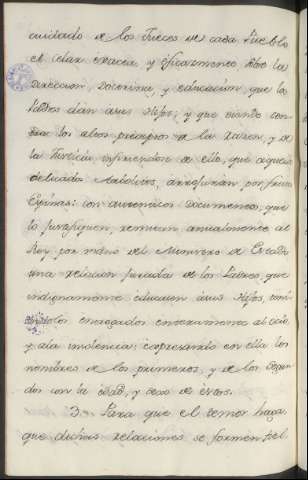 cuidado de los Jueces de cada Pueblo
el celar exacta, y eficazmente sobre la
Direccion, Doctrina, y educacion, que los
Padres dán à sus Hijos; y que siendo con-
tra los altos preceptos de la Razon, y de
la Justicia, infiriendose de ello, que aquellos
delicados Arbolitos, arrojarán por frutos
Espinas: con autenticos Documentos, que
lo justifiquen, remitan anualmente al
Rey por mano del Ministro de Estado
una relacion jurada de los Padres, que
indignamente educaren à sus Hijos, teni-
endolos entregados enteramente al ócio,
y à la indolencia: expresando en ella los
nombres de los primeros, y de los segun-
dos con la edad, y sexo de éstos.
3. Para que el temor haga,
que dichas relaciones se formen fiel